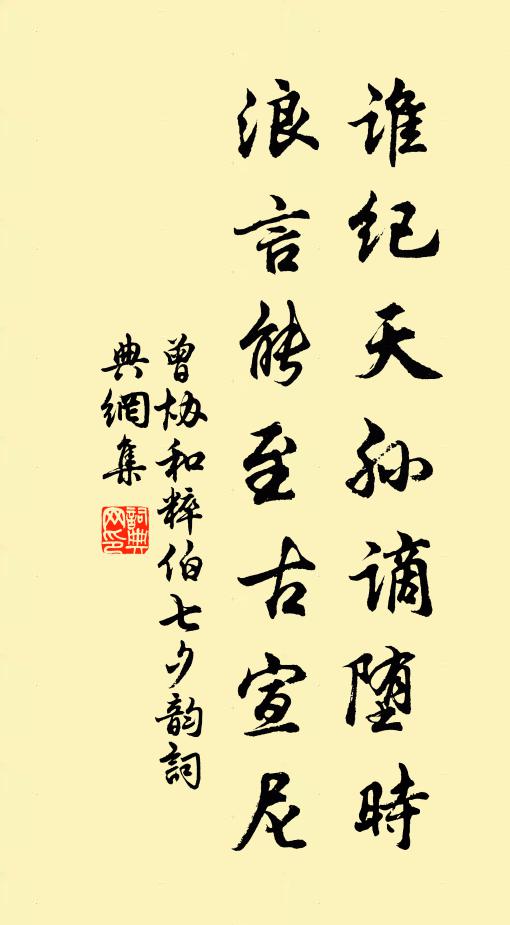 谁纪天孙谪堕時
浪言能至古宣尼
曾协和粹伯七夕韵詞
典網集
詞典網印